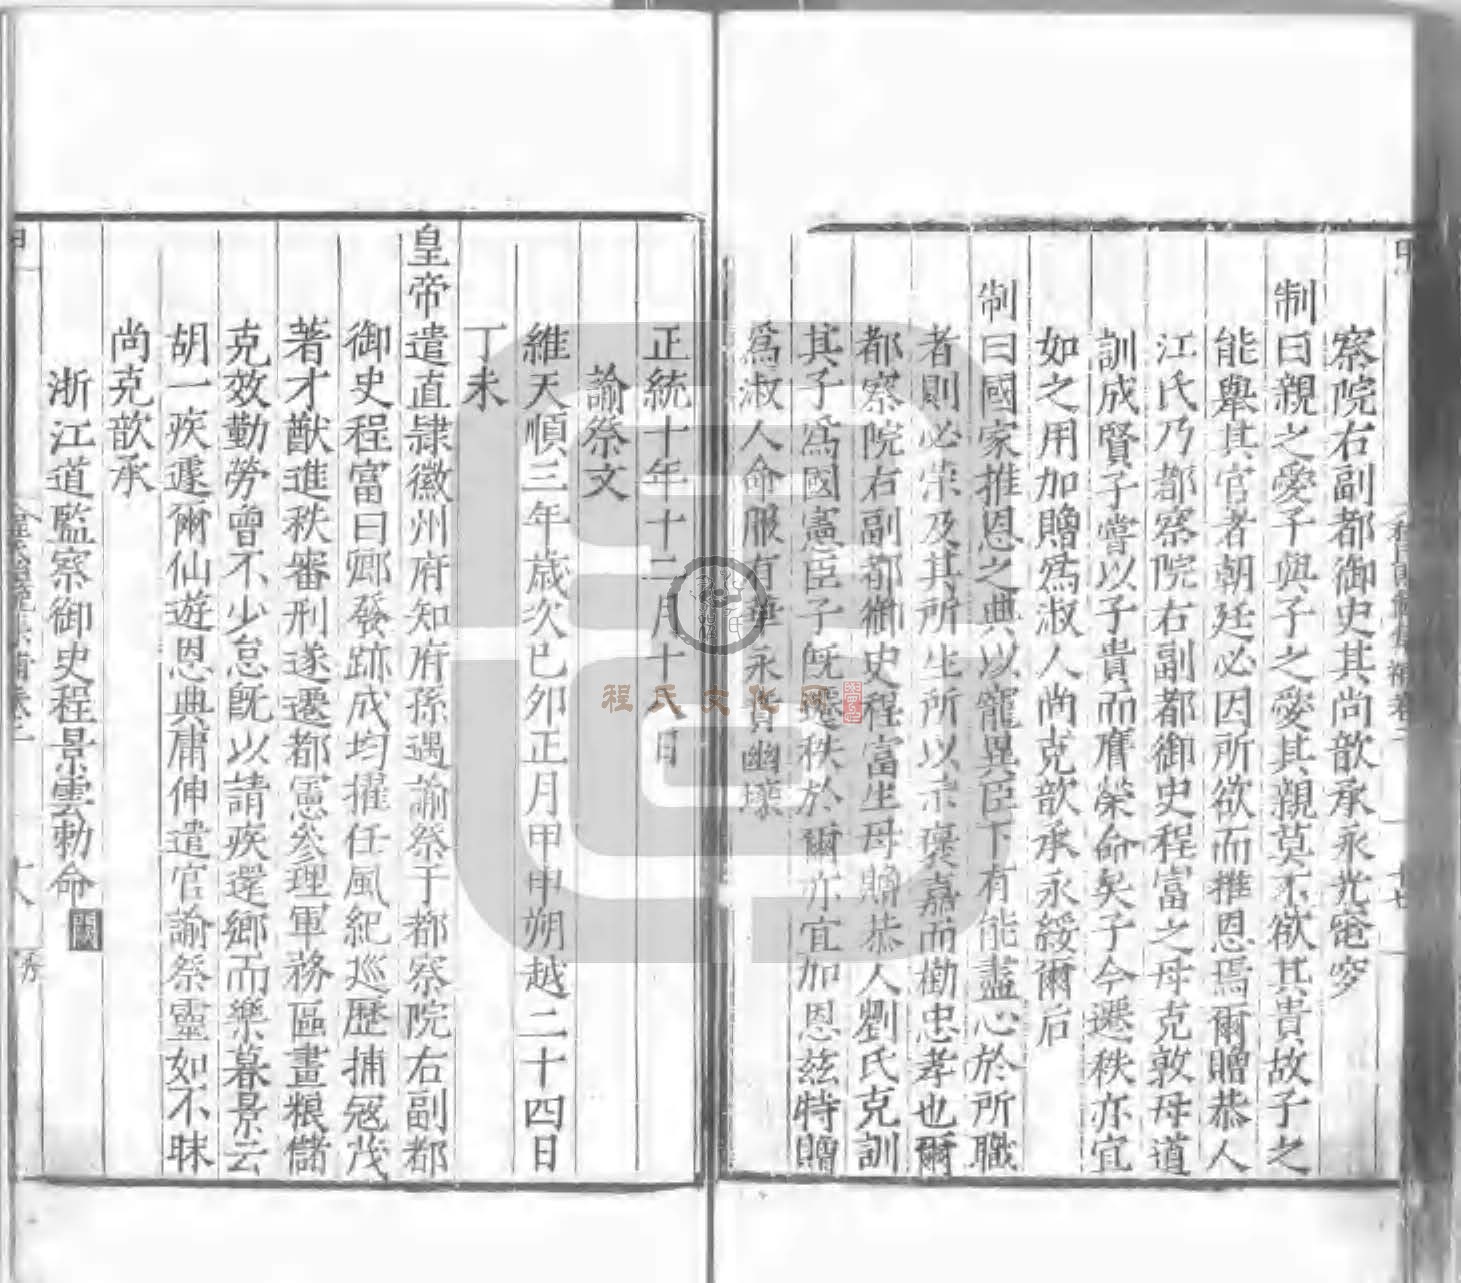 察院右副都御史其尚歆承永光窀穸
制曰親之愛子與子之愛其親莫不欲其貴故子之
能舉其官者朝廷必因所欲而推恩焉爾贈恭人
江氏乃都察院右副都御史程富之母克敦母道
訓成賢子嘗以子貴而膺榮命矣子今遷秩亦宜
如之用加贈爲淑人尚克歆承永綏爾后
制曰國家推恩之典以寵異臣下有能盡心於所職
者則必崇及其所生所以示褒嘉而勸忠孝也爾
都察院右副都御史程富生母贈恭人劉氏克訓
其子爲國憲臣子既遷秩於爾亦宜加恩茲特贈
爲淑人命服有華永賁幽壤
正統十年十二月十八日
諭祭文
維天順三年歲次己夘正月甲申朔越二十四日
丁未
皇帝遣直隷徽州府知府孫遇諭祭于都察院右副都
御史程富曰卿發跡成均擢任風紀巡歷捕冦茂
著才猷進秩審刑遂遷都憲參理軍務區畫粮儲
克效勤勞曾不少怠旣以請疾還鄉而樂暮景云
胡一疾遽爾仙遊恩典庸伸遣官諭祭靈如不昧
尚克歆承
浙江道監察御史程景雲勅命
十八
程氏文化网